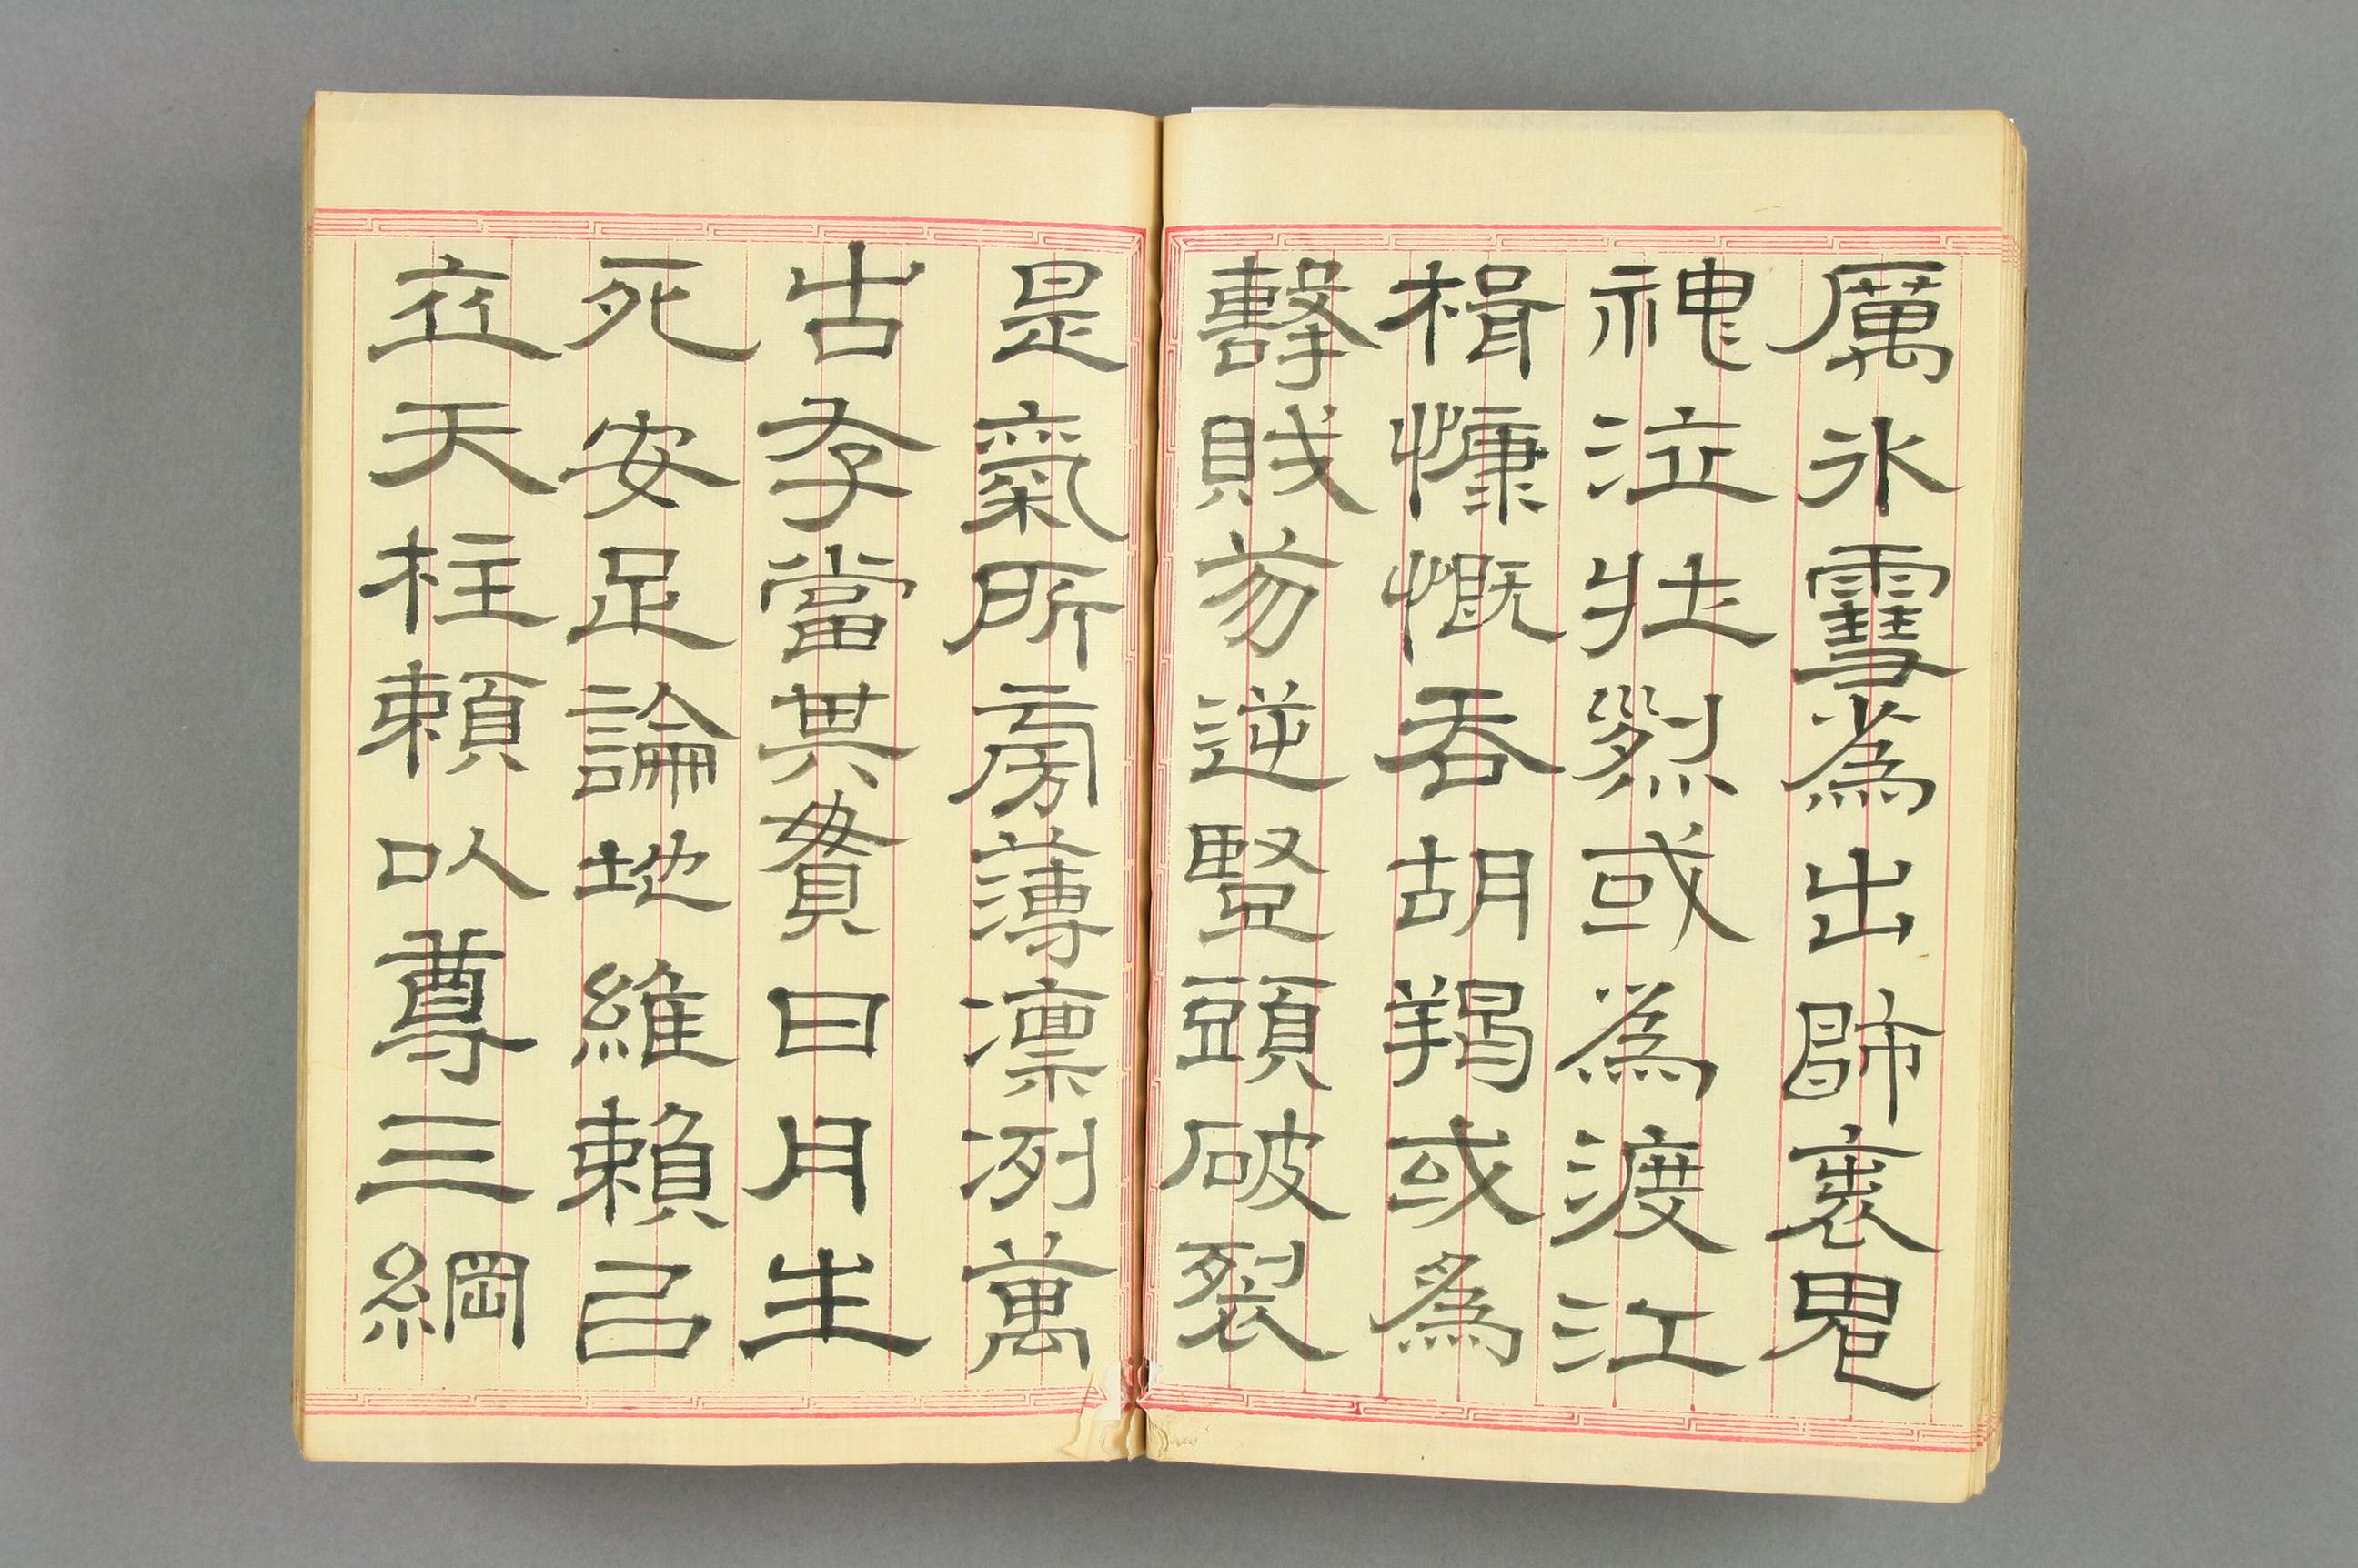 厲冰雪為出師表鬼
神泣壯烈或為渡江
楫慷慨吞胡羯或為
擊賊笏逆豎頭破裂
是氣所旁薄凜冽萬
古存當其貫日月生
死安足論地維賴㠯
立天柱賴以尊三綱